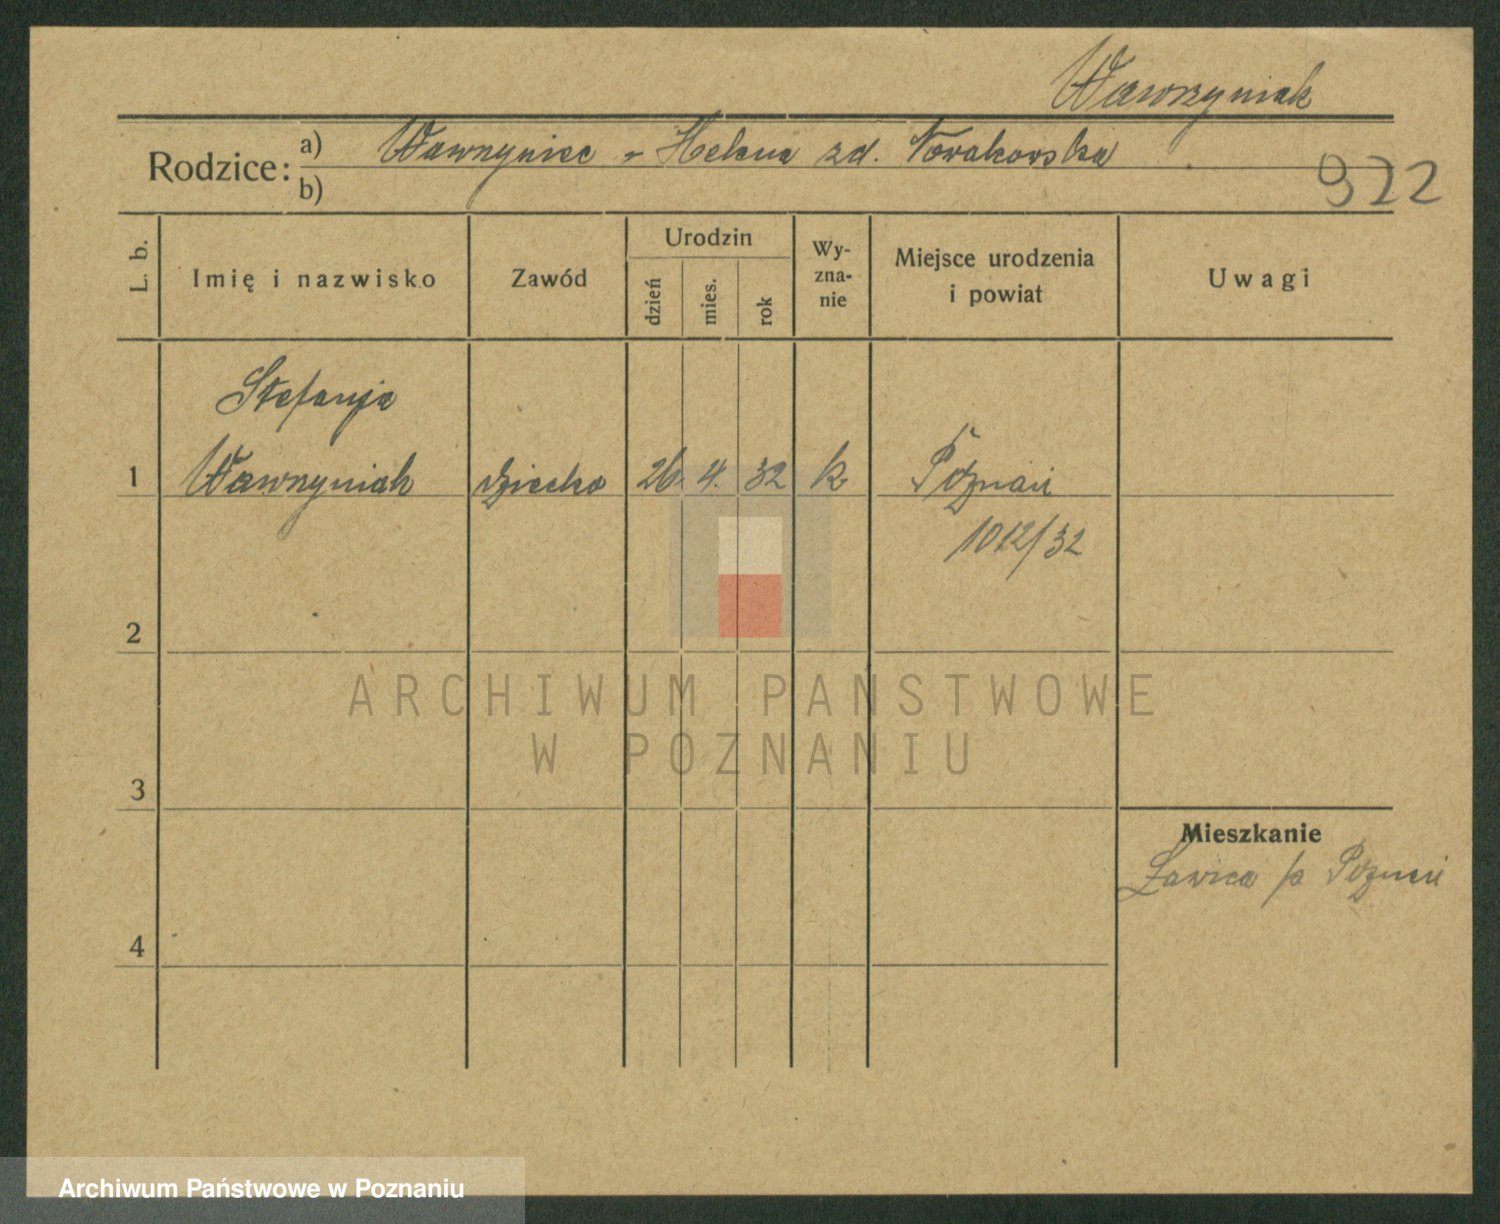 Wawrzyniak
Rodzice: a) Wawrzyniec - Helena zd. Nowakowska
b)
922
L. b.
Imię i nazwisko
Zawód
Urodzin
dzień
mies.
rok
Wy-
zna-
nie
Miejsce urodzenia
i powiat
Uwagi
Stefanja
1 Wawrzyniak dziecko 26. 4. 32 k Poznań
1012/32
2
ARCHIWUM PAŃSTWOWE
W POZNANIU
3
Mieszkanie
Ławica p. Poznań
4
Archiwum Państwowe w Poznaniu